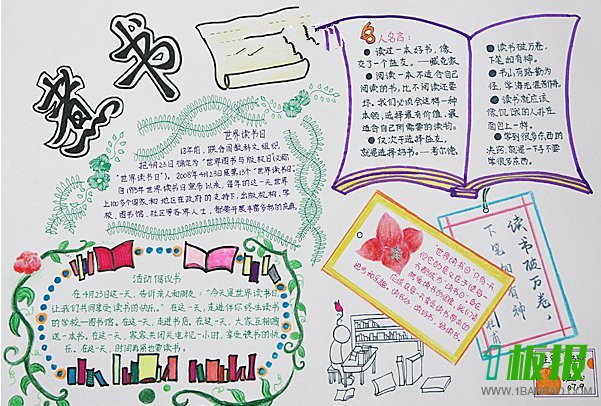 书
名人名言:
● 读过一本好书，像
交了一个益友。——臧克家
● 阅读一本不适合自己
阅读的书，比不阅读还要
坏。我们必须会这样一种
本领，选择最有价值、最
适合自己所需要的读物。
● 仅次于选择益友，
就是选择好书。——考尔德
● 读书破万卷，
下笔如有神。
● 书山有路勤为
径，学海无涯苦作舟。
● 读书就应该
像饥饿的人扑在
面包上一样。
● 学到很多东西的
决窍，就是一下子不要
学很多东西。
世界读书日
13年前，联合国教科文组织
把4月23日确定为“世界图书与版权日(又称
“世界读书日”)。2008年4月23日是第13个“世界读书日”。
自1995年世界读书日宣布以来，每年的这一天世界
上100多个国家和地区在政府的支持下，出版机构、学
校、图书馆、社区等各界人士，都要开展丰富多彩的庆典
活动倡议书
在4月23日这一天，告诉亲人和朋友：“今天是世界读书日，
让我们共同享受读书的快乐。”在这一天，走进伴你终生读书
的学校—图书馆。在这一天，走进书店。在这一天，大家互相赠
送一本书。在这一天，家家关闭电视一小时，享受读书的快
乐。在这一天，时间再紧也要读书。
世界读书日只有一天
读书破万卷，
下笔如有神
1板报
WWW.1BANBAO.COM